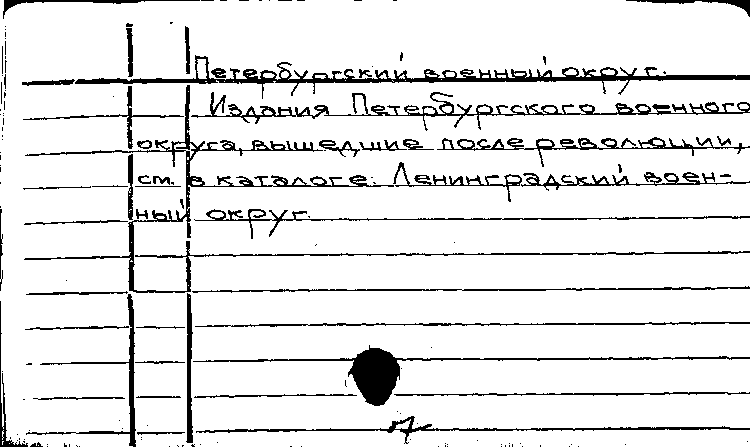 Петербургский военный округ.
Издания Петербургского военного
округа, вышедшие после революции,
см. в каталоге: Ленинградский воен-
ный округ.